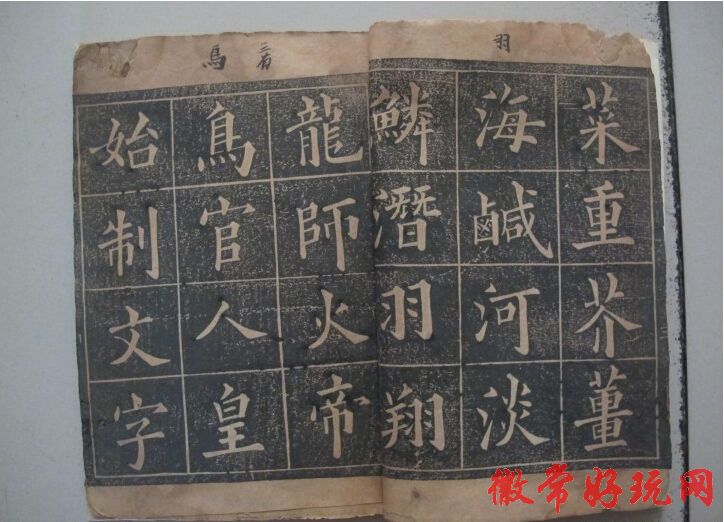 羽
菜重芥薑
海鹹河淡
鱗潛羽翔
龍師火帝
鳥官人皇
始制文字
徽常好玩网